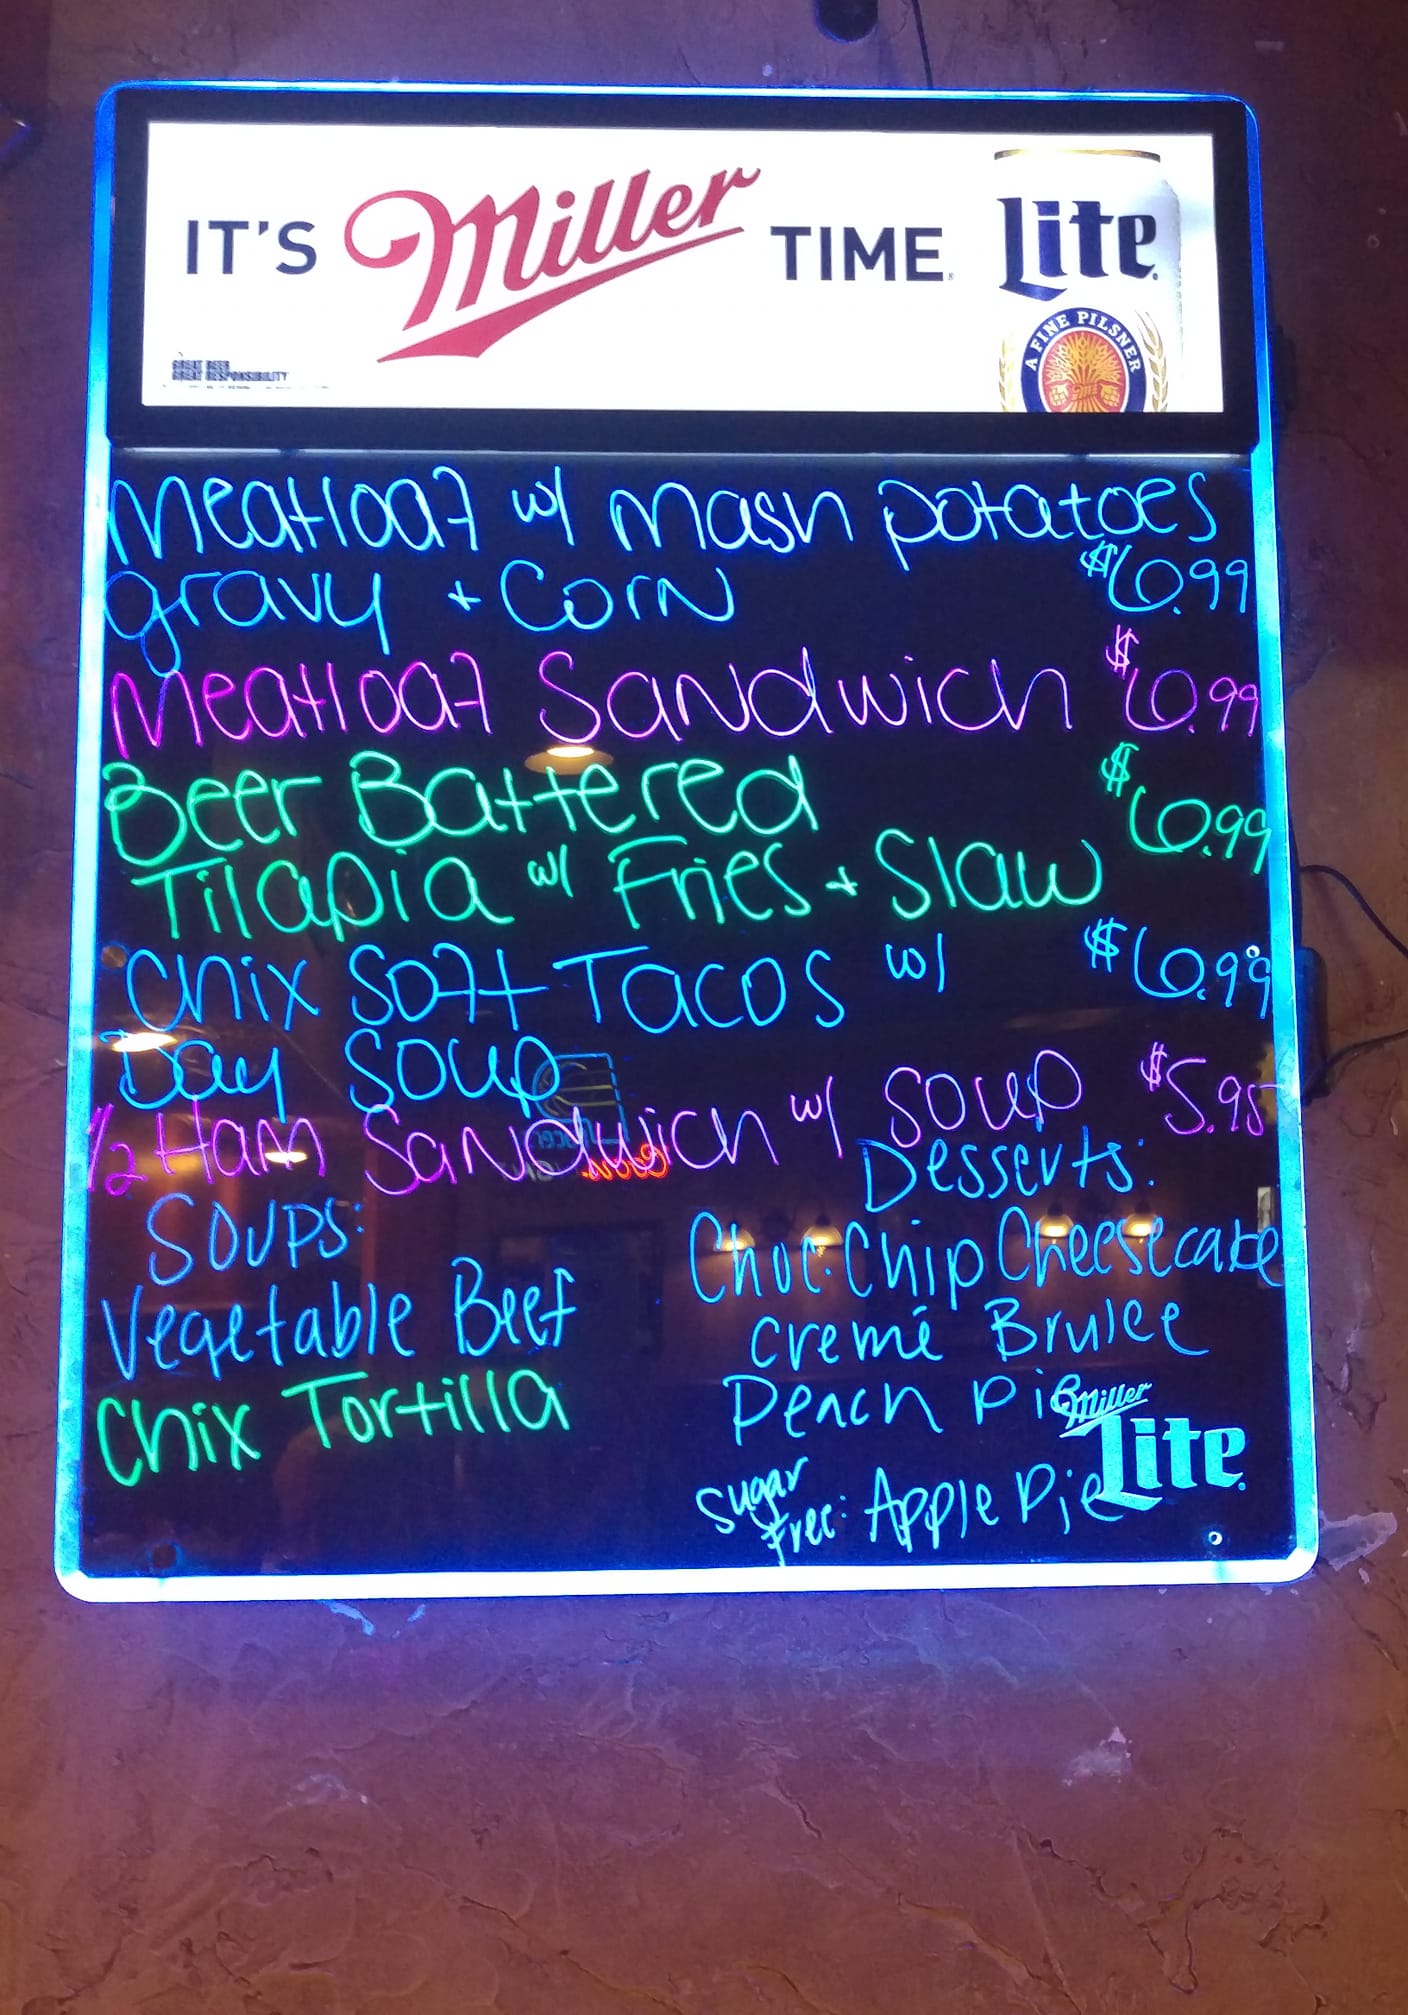 IT'S Miller TIME. Lite
A FINE PILSNER
GREAT BEER
GREAT RESPONSIBILITY
Meatloaf w/ Mash potatoes
gravy + Corn $6.99
Meatloaf Sandwich $6.99
Beer Battered $6.99
Tilapia w/ Fries + Slaw
Chix Soft Tacos w/ $6.99
Day Soup
1/2 Ham Sandwich w/ Soup $5.95
Soups:
Vegetable Beef
Chix Tortilla
Desserts:
Choc. Chip Cheesecake
Cremé Brulee
Peach Pie
Sugar
Free: Apple Pie
Miller
Lite